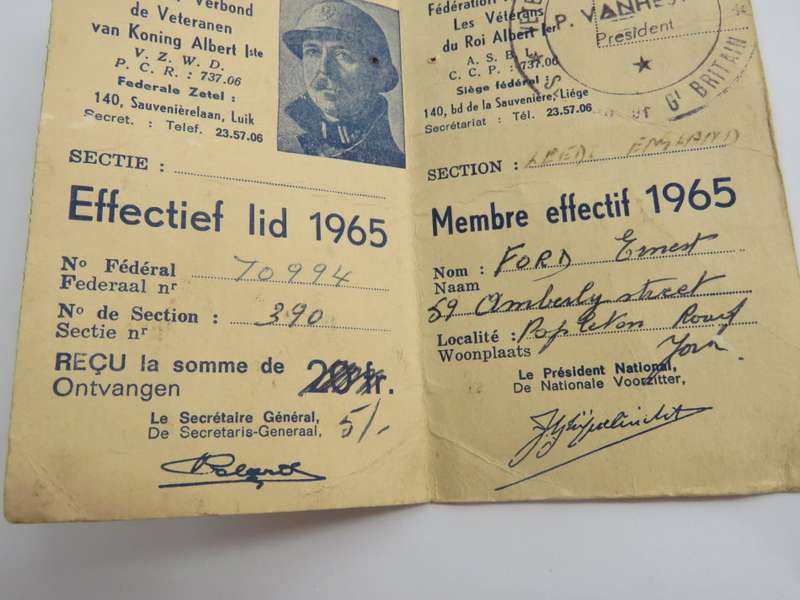 Verbond
de Veteranen
van Koning Albert Iste
V. Z. W. D.
P. C. R. : 737.06
Federale Zetel :
140, Sauvenièrelaan, Luik
Secret. : Telef. 23.57.06
SECTIE :
Effectief lid 1965
No Fédéral 70994
Federaal nr
No de Section : 390
Sectie nr
REÇU la somme de 20 fr.
Ontvangen
Le Secrétaire Général,
De Secretaris-Generaal, 5/-
Fédération
Les Vétérans
du Roi Albert Ier
A. S. B. L.
C. C. P. : 737.06
Siège fédéral :
140, bd de la Sauvenière, Liége
Secrétariat : Tél. 23.57.06
P. VANHE
President
Gt BRITAIN
SECTION : LEEDS ENGLAND
Membre effectif 1965
Nom : FORD Ernest
Naam
59 Amberly street
Localité : Popleton Road
Woonplaats York
Le Président National,
De Nationale Voorzitter,